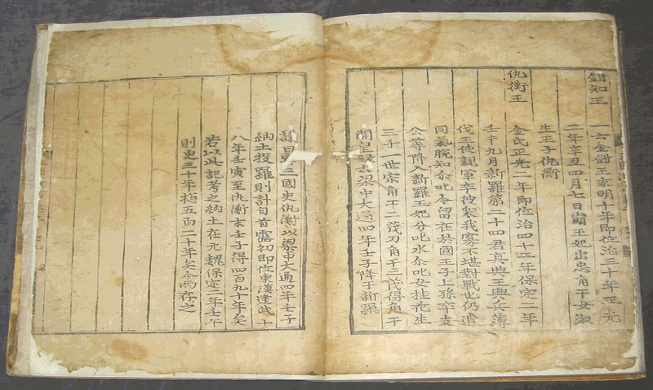 鉗知王
一云金鉗王永明十年即位治三十年正光
二年辛丑四月七日崩王妃出忠角干女淑
生王子仇衡
仇衡王
金氏正光二年即位治四十二年保定二年
壬午九月新羅第二十四君真興王興兵薄
伐王使親軍卒彼衆我寡不堪對戰也仍遣
同氣脫知尒叱今留在於國王子上孫卒支
公等降入新羅王妃分叱水尒叱女桂花生
三子一世宗角干二茂刀角干三茂得角干
開皇錄云梁中大通四年壬子降于新羅
議曰案三國史仇衡以梁中大通四年壬子
納土投羅則計自首露初即位東漢建武十
八年壬寅至仇衡末壬子得四百九十年矣
若以此記考之納土在元魏保定二年壬午
則更三十年揔五百二十年矣今兩存之